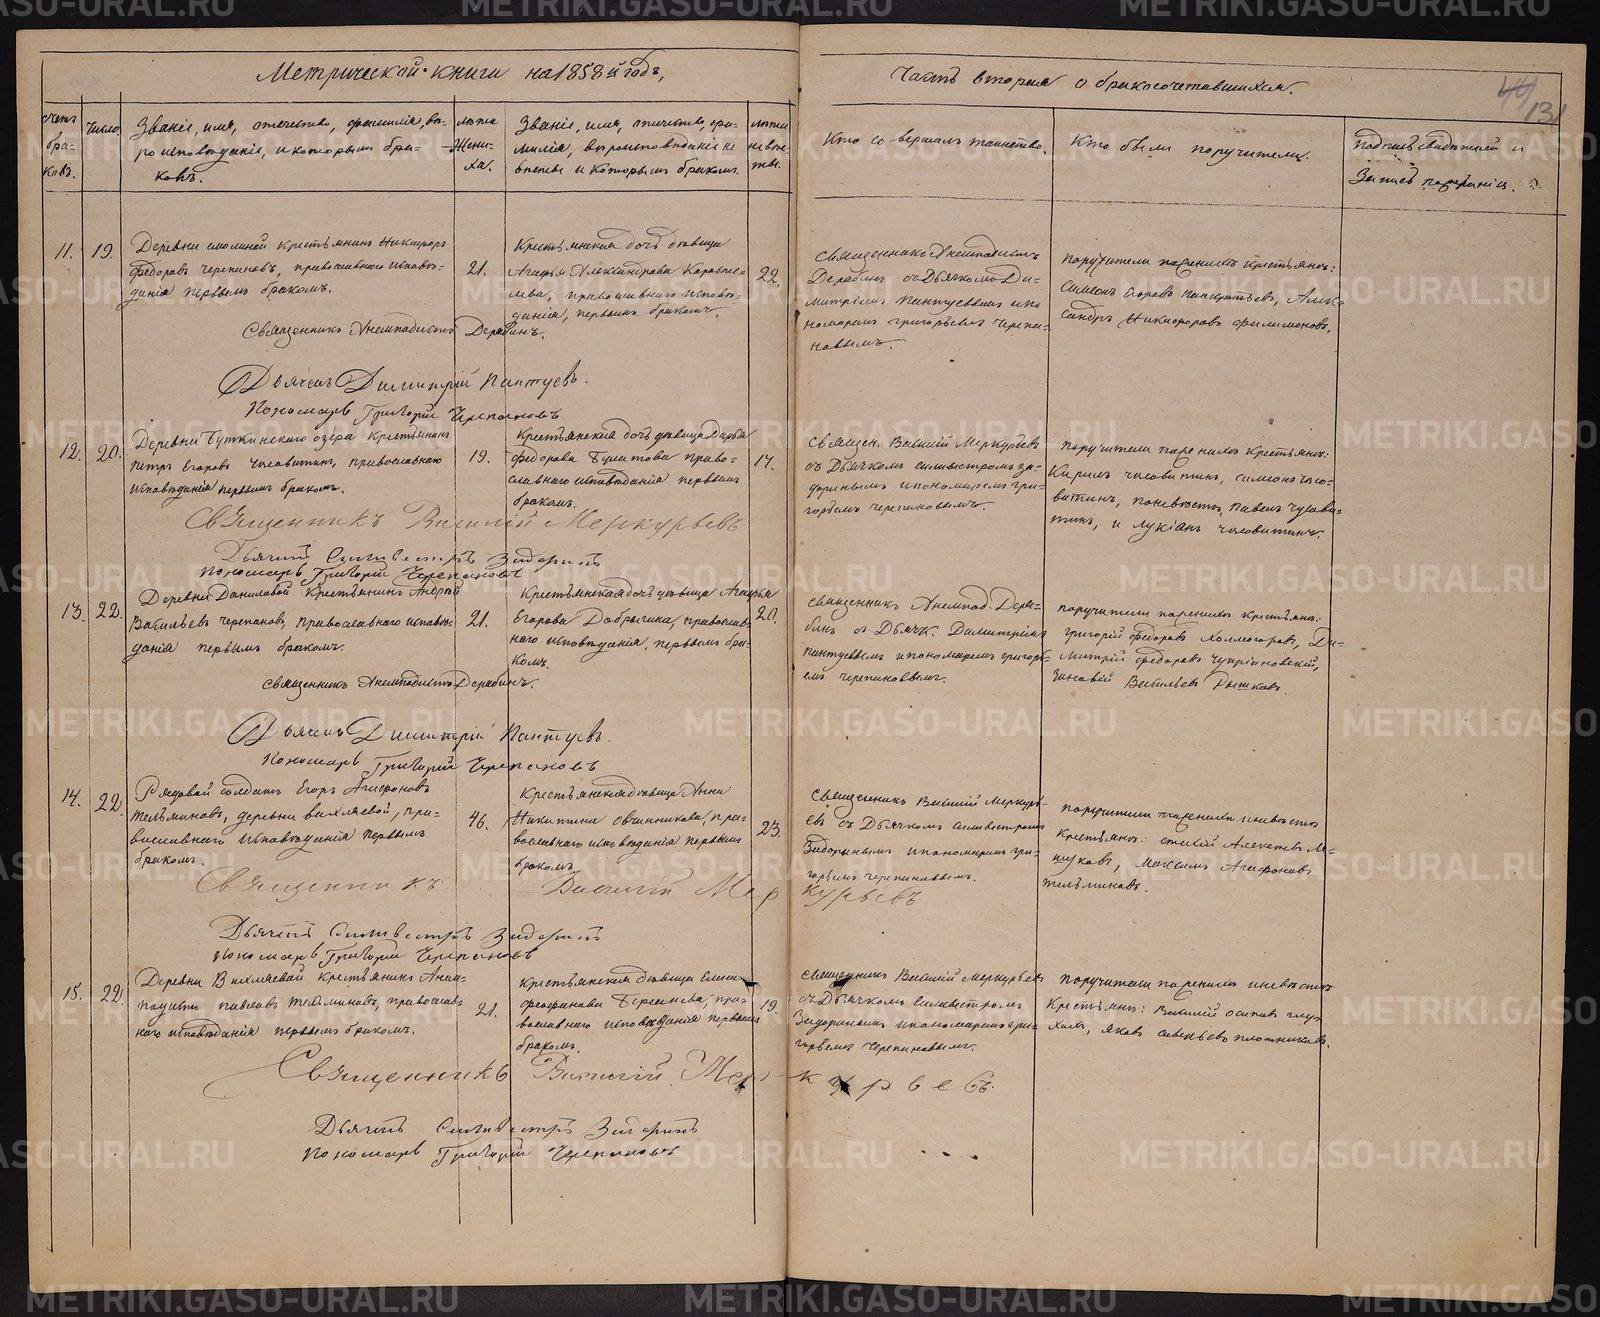 Метрической книги на 1858й годъ,
Часть вторая о бракосочетавшихся.
44
131
Счетъ браковъ.
Число
Званіе, имя, отечество, фамилія, вѣроисповѣданіе, и которымъ бракомъ.
лѣта Жениха.
Званіе, имя, отчество, фамилія, вѣроисповѣданіе невѣсты и которымъ бракомъ.
лѣта невѣсты.
Кто совершалъ таинство.
Кто были поручители.
Подпись свидѣтелей и
Запись
11.
19.
Деревни крестьянинъ Никифоръ
Федоровъ Черепановъ, православнаго исповѣ-
данія первымъ бракомъ.
21.
Крестьянская дочь дѣвица
Агафья Александрова
православнаго исповѣ-
данія, первымъ бракомъ.
22.
Священникъ Анемподистъ
Дерябинъ съ Дьячкомъ Ди-
митріемъ Пантуевымъ и по
номаремъ Григорьемъ Черепа-
новымъ.
поручители по женихѣ крестьяне:
Симеонъ Егоровъ Панкратьевъ, Алек
сандръ Никифоровъ Филимоновъ.
Священникъ Анемподистъ Дерябинъ.
Дьячекъ Димитрій Пантуевъ.
Пономарь Григорій Черепановъ
12.
20.
Деревни Буткинскаго озера крестьянинъ
Петръ Егоровъ Часовитинъ, православнаго
исповѣданія первымъ бракомъ.
19.
Крестьянская дочь дѣвица Дарья
Федорова православнаго
исповѣданія первымъ
бракомъ.
17.
Священ. Василій Меркурьевъ
съ Дьячкомъ Силивестромъ За-
доринымъ и пономаремъ Гри-
горьемъ Черепановымъ.
поручители по женихѣ крестьяне:
Кирилъ Часовитинъ, Симеонъ Часо-
витинъ, по невѣстѣ, Павелъ
и Лукіанъ Часовитинъ.
Священникъ Василій Меркурьевъ
Дьячекъ Силивестръ Задоринъ
Пономарь Григорій Черепановъ
13.
22.
Деревни Даниловой Крестьянинъ Андрей
Васильевъ Черепановъ, православнаго исповѣ-
данія первымъ бракомъ.
21.
Крестьянская дочь дѣвица Агафья
Егорова Добрыгина, православ-
наго исповѣданія, первымъ бра-
комъ.
20.
Священникъ Анемпод. Деря-
бинъ съ Дьячк. Димитріемъ
Пантуевымъ и пономаремъ Григорь-
емъ Черепановымъ.
поручители по женихѣ крестьяне:
Григорій Федоровъ Холмогоровъ, Ди-
митрій Федоровъ
Зиновій Васильевъ Рыжковъ.
Священникъ Анемподистъ Дерябинъ.
Дьячекъ Димитрій Пантуевъ.
Пономарь Григорій Черепановъ
14.
22.
Рядовой солдатъ Егоръ Агафоновъ
Тельминовъ, деревни Вихляевой, пра-
вославнаго исповѣданія первымъ
бракомъ.
46.
Крестьянская дѣвица Анна
Никитина Овчинникова, пра-
вославнаго исповѣданія первымъ
бракомъ.
23.
Священникъ Василій Меркурь-
евъ съ Дьячкомъ Силивестромъ
Задоринымъ и пономаремъ Гри-
горьемъ Черепановымъ.
поручители по женихѣ и невѣстѣ
крестьяне: Алексѣевъ
Максимъ Агафоновъ
Тельминовъ.
Священникъ Василій Меркурьевъ
Дьячекъ Силивестръ Задоринъ
Пономарь Григорій Черепановъ
15.
22.
Деревни Вихляевой крестьянинъ Анем-
подистъ Павловъ Тельминовъ, православ-
наго исповѣданія первымъ бракомъ.
21.
Крестьянская дѣвица Елена
пра-
вославнаго исповѣданія первымъ
бракомъ.
19.
Священникъ Василій Меркурьевъ
съ Дьячкомъ Силивестромъ
Задоринымъ и пономаремъ Гри-
горьемъ Черепановымъ.
поручители по женихѣ и невѣстѣ
крестьяне: Василій Осиповъ Глу-
хихъ, Яковъ Савельевъ Плотниковъ.
Священникъ Василій Меркурьевъ.
Дьячекъ Силивестръ Задоринъ
Пономарь Григорій Черепановъ
METRIKI.GASO-URAL.RU